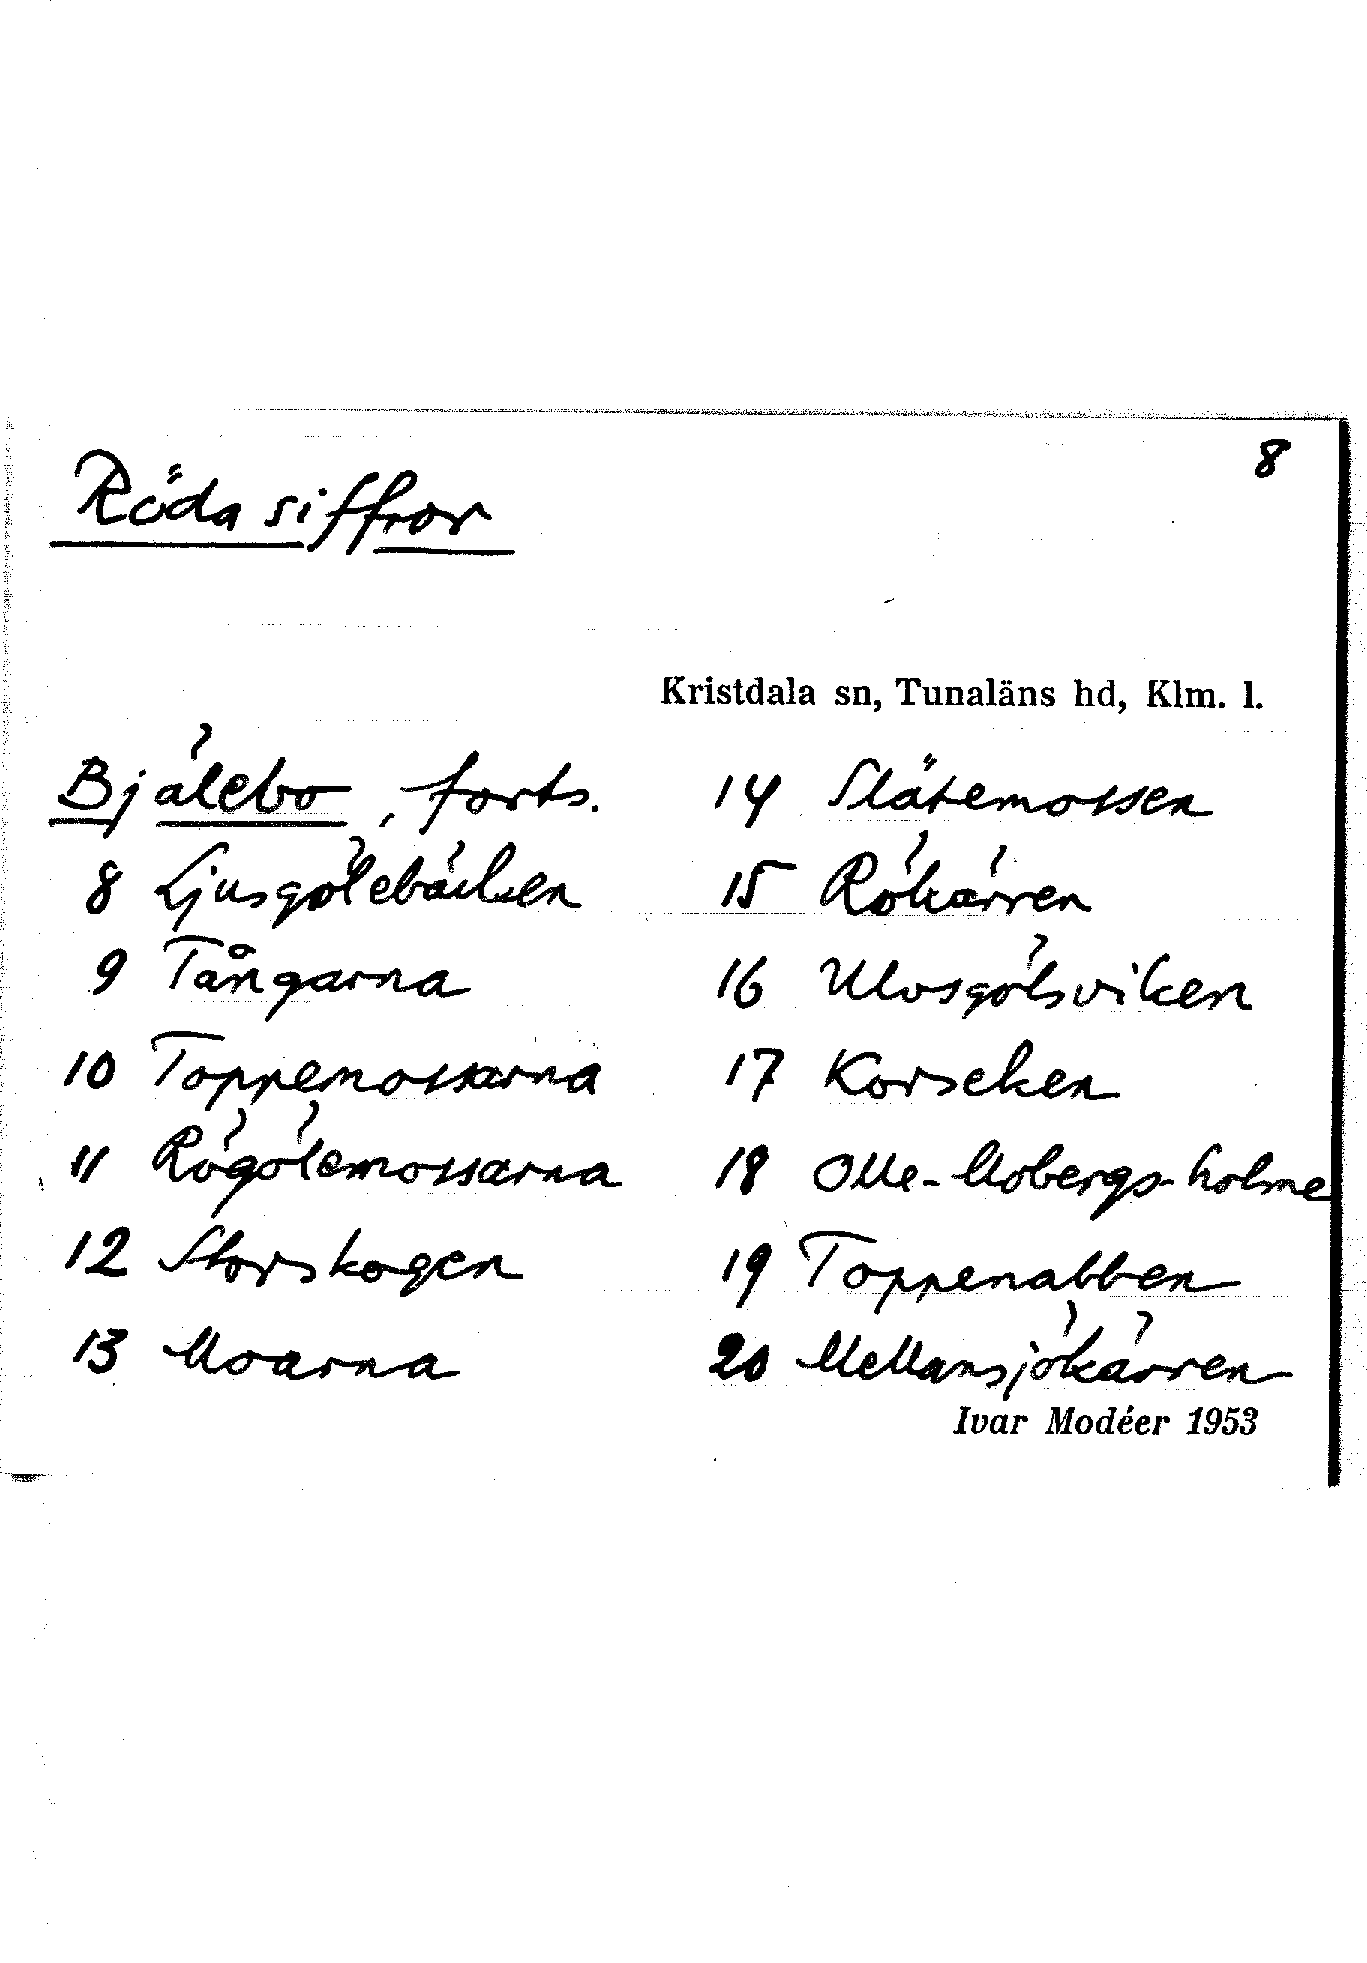 8
Röda siffror
Kristdala sn, Tunaläns hd, Klm. l.
Bjälebo, forts.
8 Ljusgölebäcken
9 Tångarna
10 Toppemossarna
11 Rögölemossarna
12 Storskogen
13 Moarna
14 Slätemossen
15 Rökärren
16 Ulvsgölsviken
17 Korseken
18 Olle-Mobergs-holme
19 Toppenabben
20 Mellansjökärren
Ivar Modéer 1953